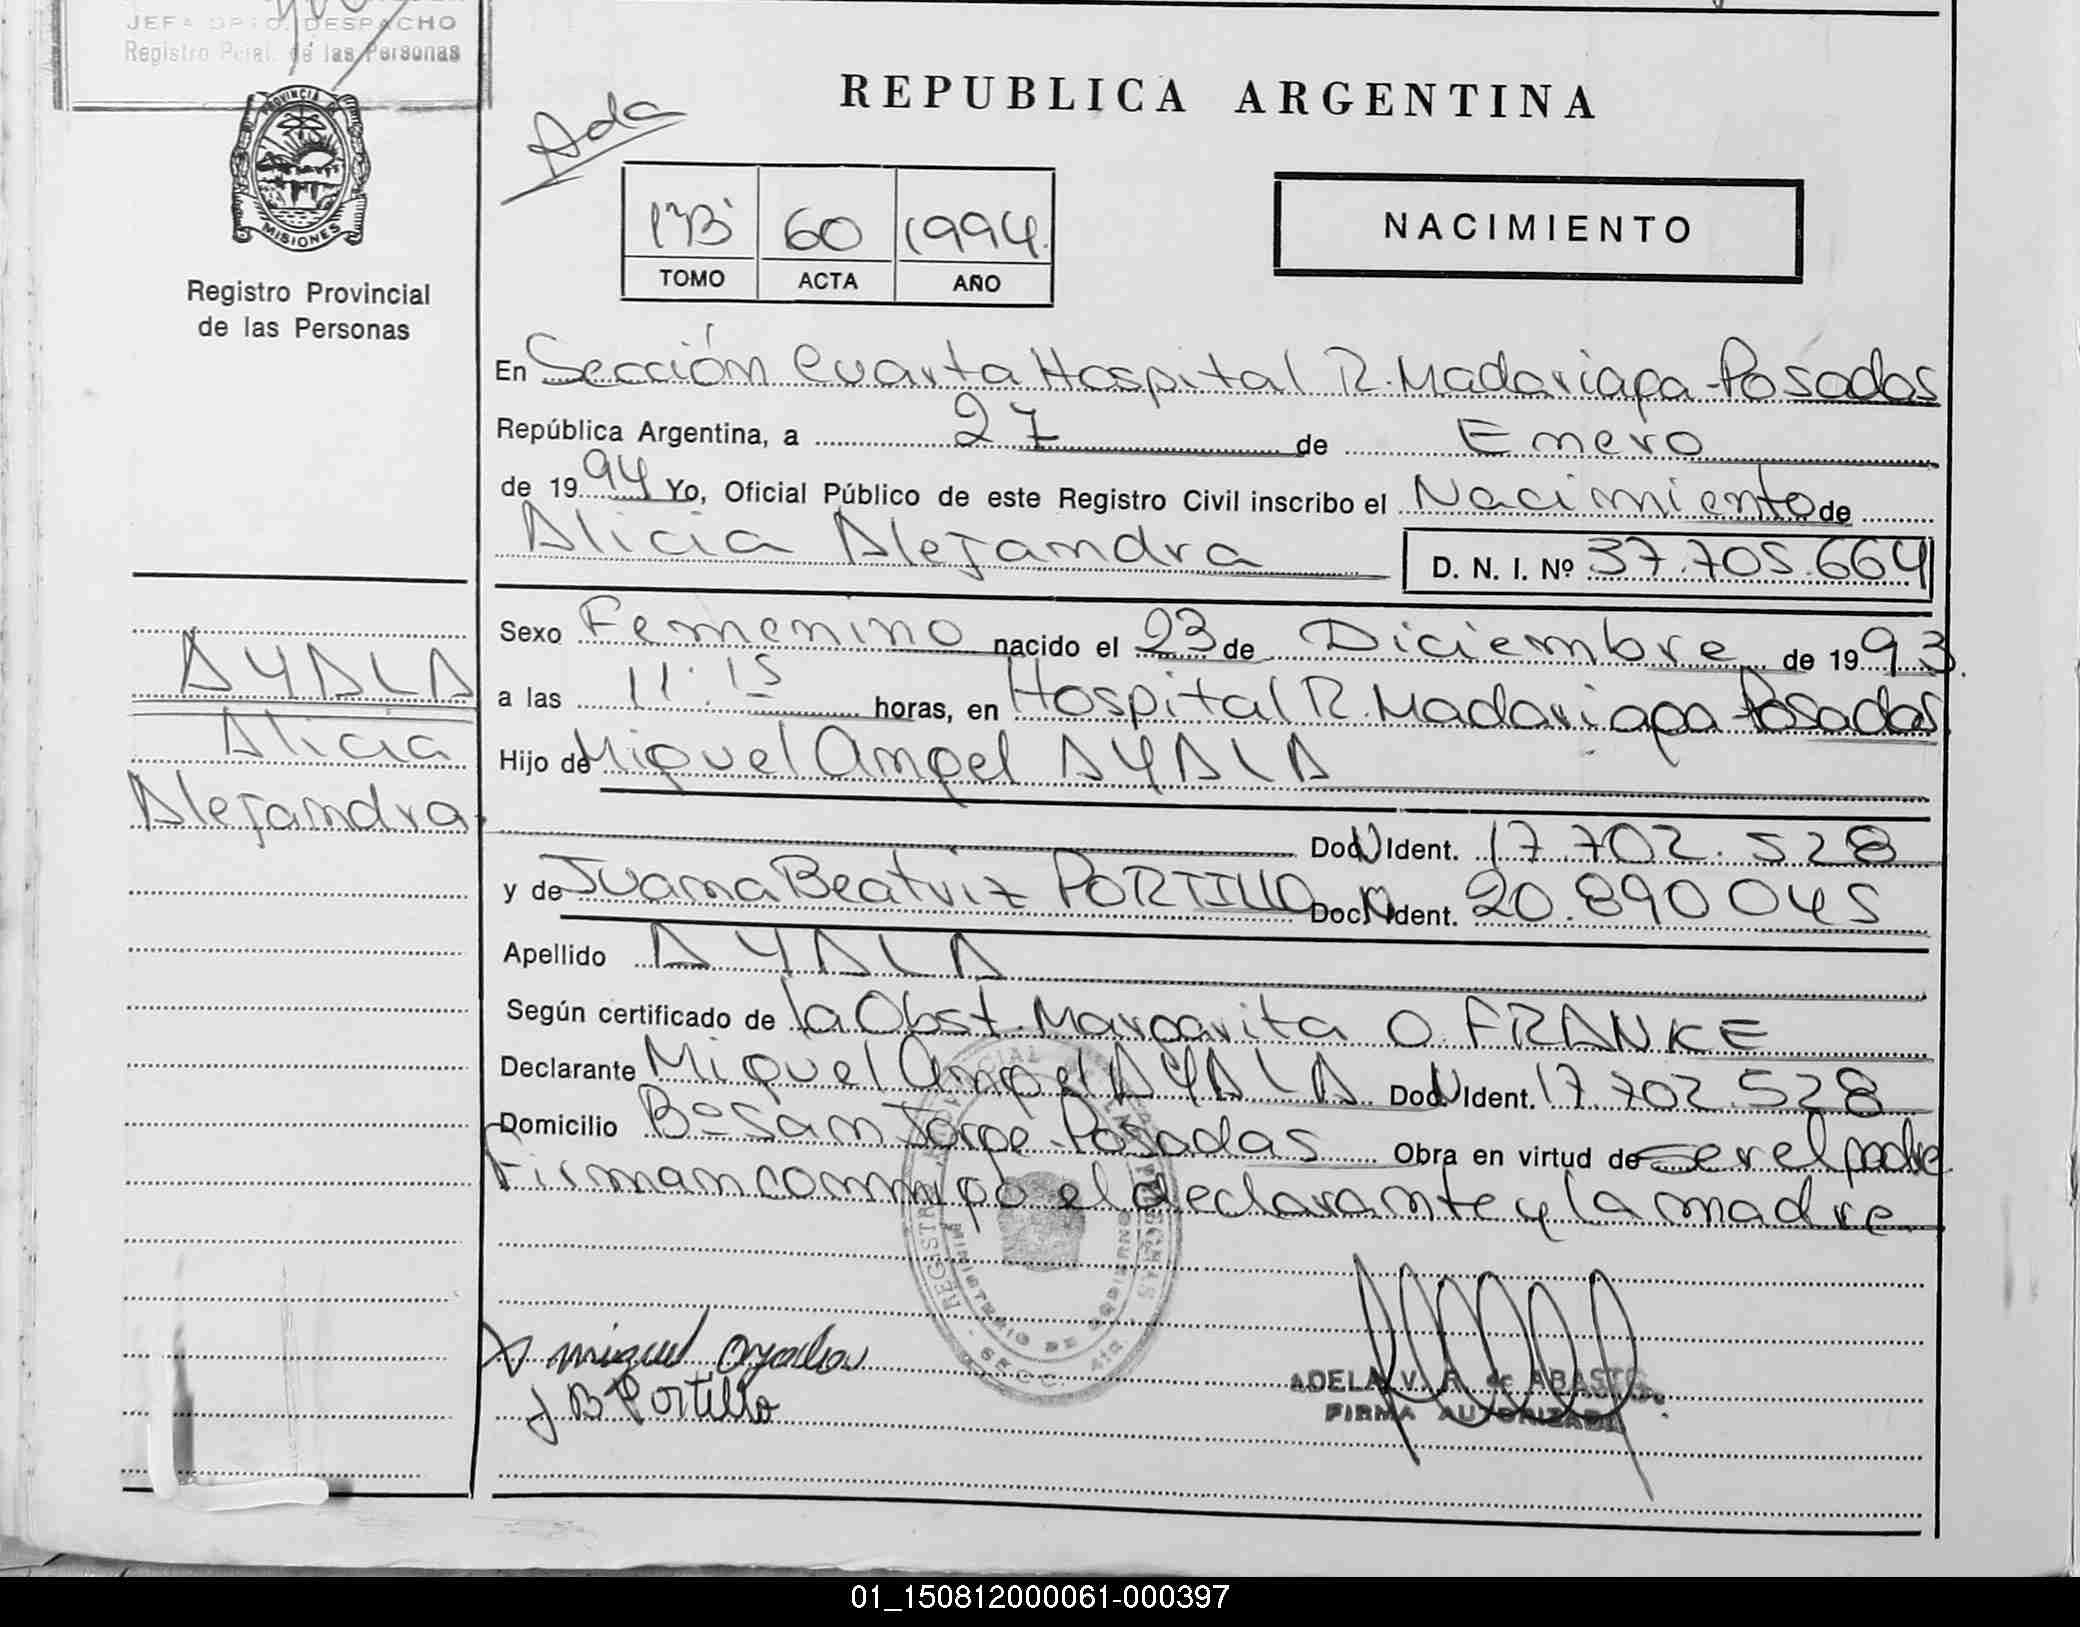 JEFA DPTO. DESPACHO
Registro Pcial. de las Personas
PROVINCIA DE
MISIONES
Registro Provincial
de las Personas
REPUBLICA ARGENTINA
Ada
60 1994
TOMO ACTA AÑO
NACIMIENTO
En Sección Cuarta Hospital R. Madariaga - Posadas
República Argentina, a 27 de Enero
de 1994 Yo, Oficial Público de este Registro Civil inscribo el Nacimiento de
Alicia Alejandra D. N. I. Nº 37.705.664
Sexo Femenino nacido el 23 de Diciembre de 1993.
a las 11:15 horas, en Hospital R. Madariaga Posadas
Hijo de Miguel Angel AYALA
Doc. Ident. 17.702.528
y de Juana Beatriz PORTILLO Doc. Ident. 20.890 045
Apellido AYALA
Según certificado de la Obst. Margarita O. FRANKE
Declarante Miguel Angel AYALA Doc. Ident. 17.702.528
Domicilio Bº San Jorge - Posadas Obra en virtud de ser el padre
Firman conmigo el declarante y la madre
AYALA
Alicia
Alejandra
REGISTRO PROVINCIAL DE LAS PERSONAS
MINISTERIO DE GOBIERNO
SECC. 4ta.
miguel ayala
J B Portillo
ADELA V. R. de ABASTO
FIRMA AUTORIZADA
01_150812000061-000397